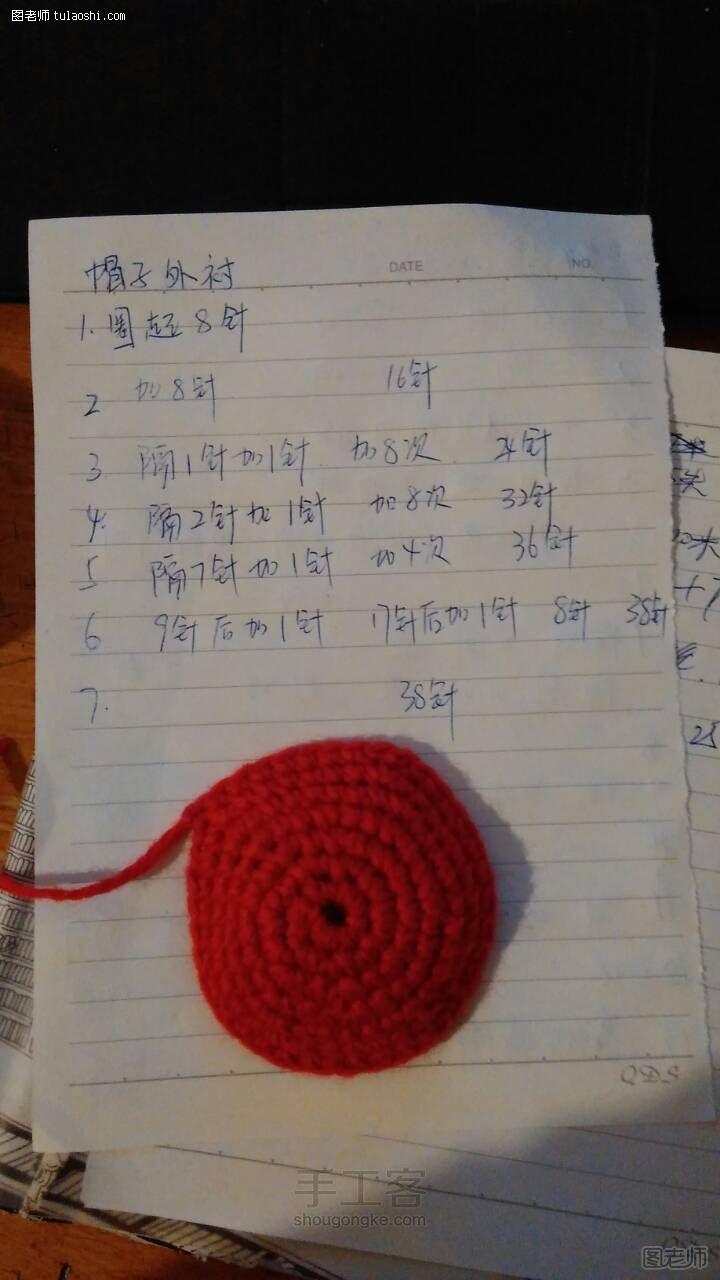 图老师 tulaoshi.com
帽子外衬
DATE NO.
1. 圈起8针
2 加8针 16针
3 隔1针加1针 加8次 24针
4. 隔2针加1针 加8次 32针
5 隔7针加1针 加4次 36针
6 9针后加1针 17针后加1针 8针 38针
7. 38针
25
QDS
手工客
shougongke.com
图老师